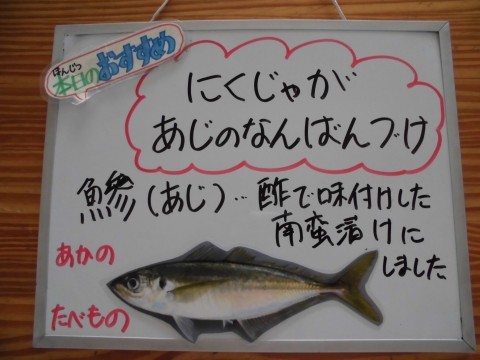 ほんじつ
本日のおすすめ
にくじゃが
あじのなんばんづけ
鰺(あじ)…酢で味付けした
南蛮漬けに
しました
あかの
たべもの